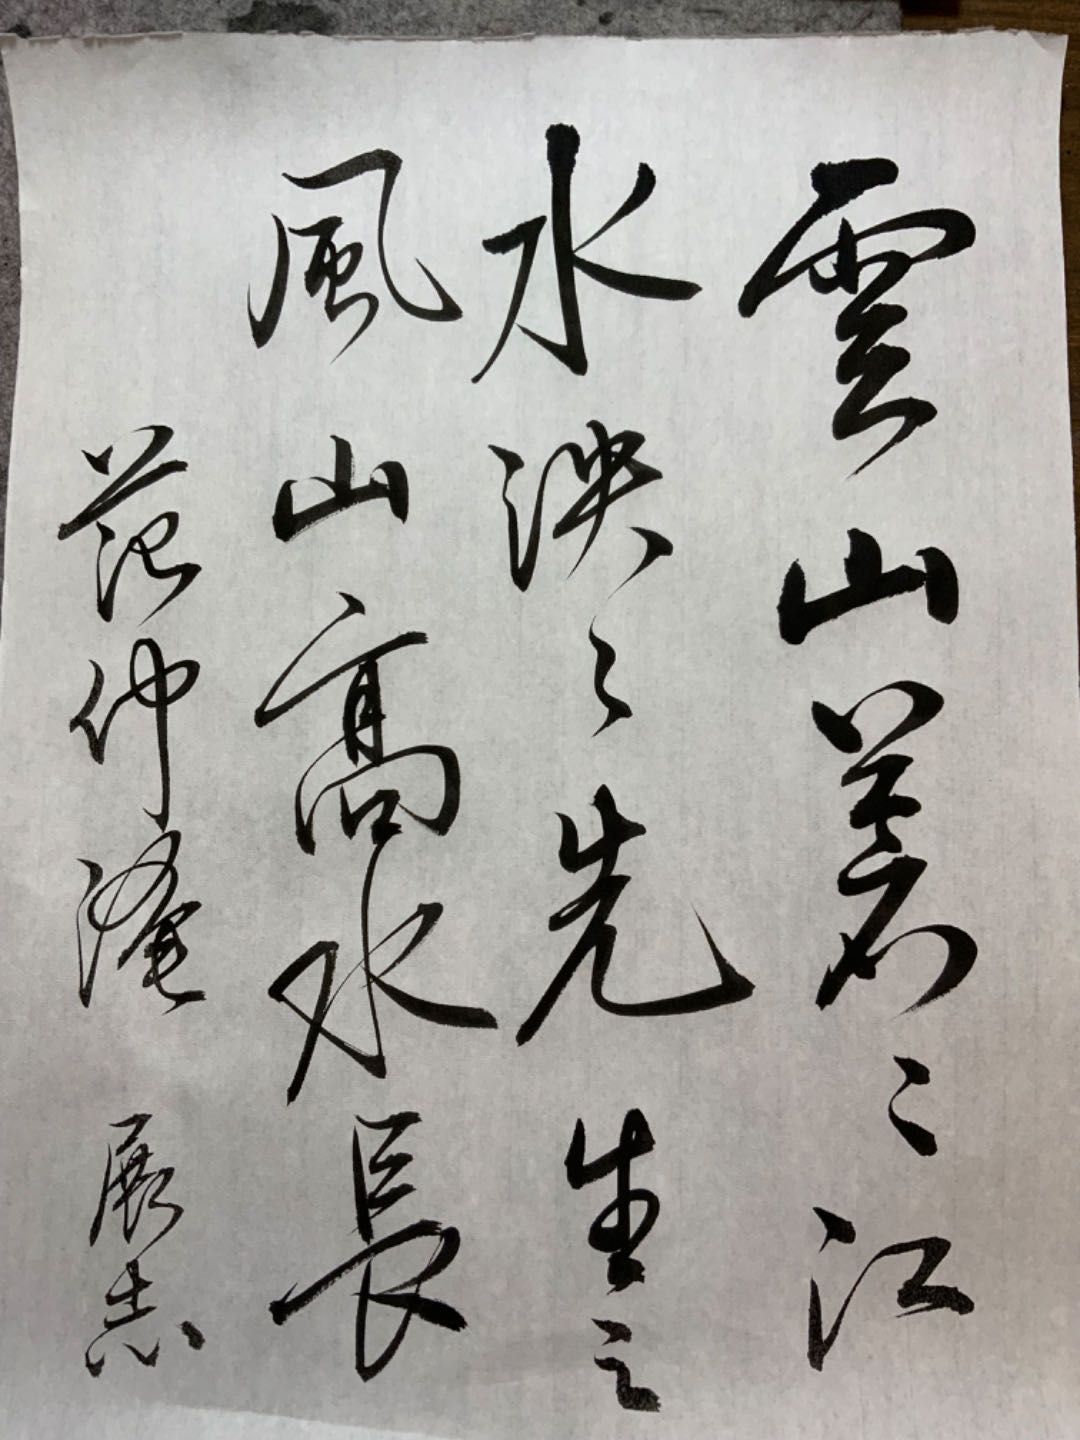 雲山蒼〻江
水泱〻先生之
風山高水長
范仲淹 展志